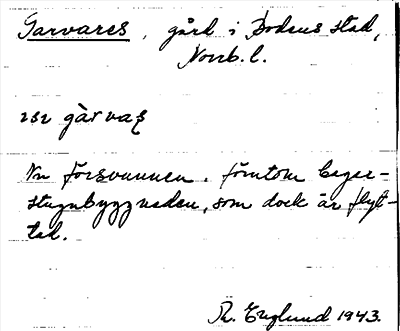 Garvares, gård i Bodens stad,
Norrb. l.
252 gàrvaʂ
Nu försvunnen, förutom bager-
stugubyggnaden, som dock är flyt-
tad.
R. Englund 1943.